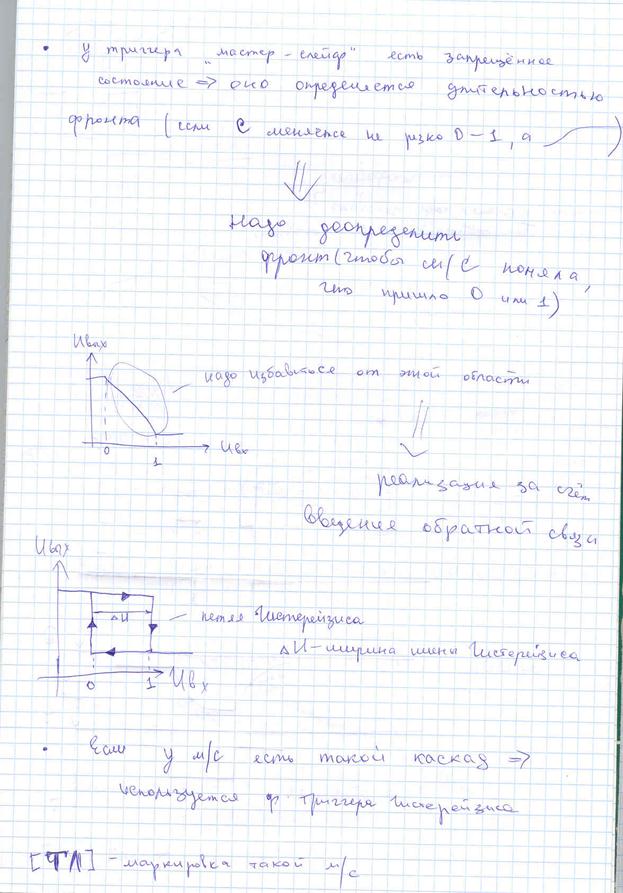 • У триггера "мастер-слейф" есть запрещённое
состояние => оно определяется длительностью
фронта (если C меняется не резко 0-1, а )
Надо доопределить
фронт (чтобы м/с поняла,
что пришло 0 или 1)
Uвых
надо избавиться от этой области
0 1 Uвх
реализация за счёт
введения обратной связи
Uвых
ΔU
петля Гистерезиса
ΔU-ширина Гистерезиса
0 1 Uвх
• Если у м/с есть такой каскад =>
используется Триггера Гистерезиса
[ТЛ] - маркировка такой м/с